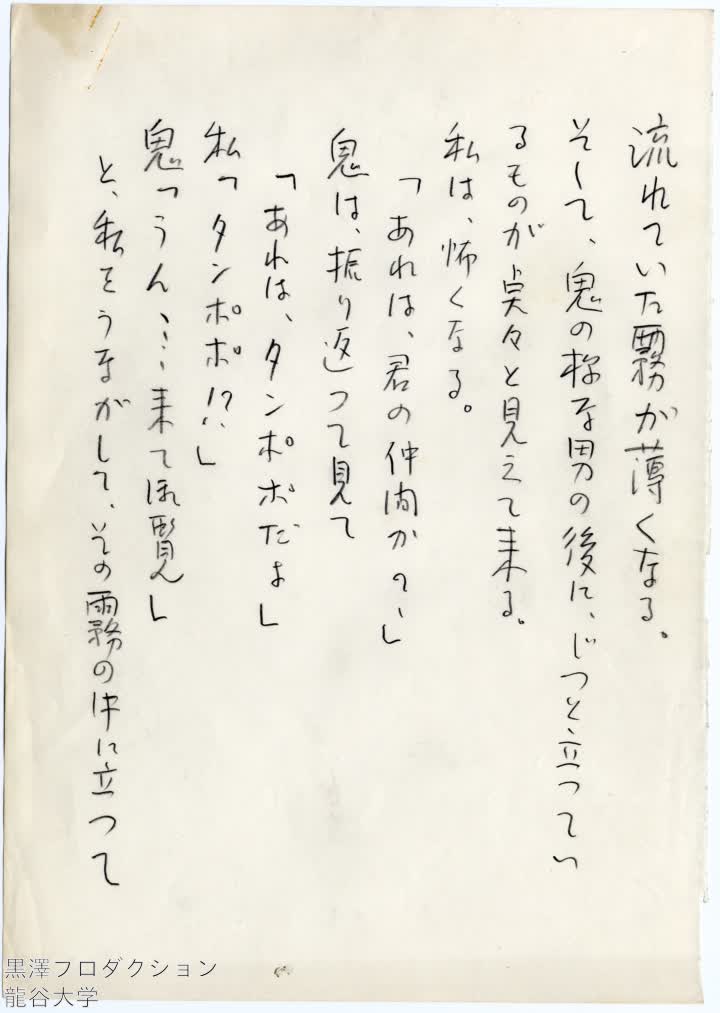 流れていた霧が薄くなる。
そして、鬼の様な男の後に、じつと立つてい
るものが点々と見えて来る。
私は、怖くなる。
「あれは、君の仲間かの、」
鬼は、振り返つて見て
「あれは、タンポポだよ」
私「タンポポ!?」
鬼「うん、…来てほ覧」
と、私をうながして、その霧の中に立つて
黒澤プロダクション
龍谷大学